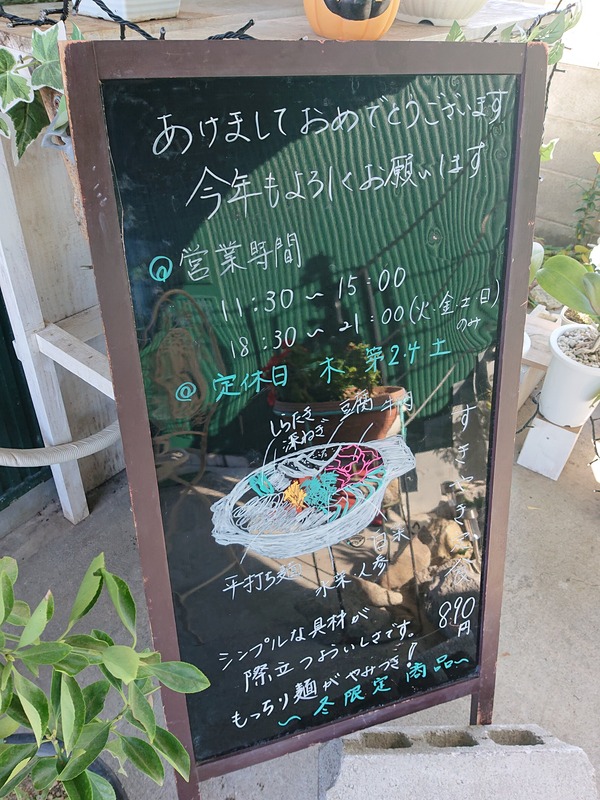 あけましておめでとうございます
今年もよろしくお願いします
@営業時間
11:30〜15:00
18:30〜21:00(火・金・土・日)
のみ
@定休日 木 第2.4土
しらたき 豆腐 牛肉
深ねぎ
白菜
平打ち麺 水菜 人参
890
円
シンプルな具材が
際立つよういしさです。
もっちり麺がやみつき!
〜冬限定商品〜